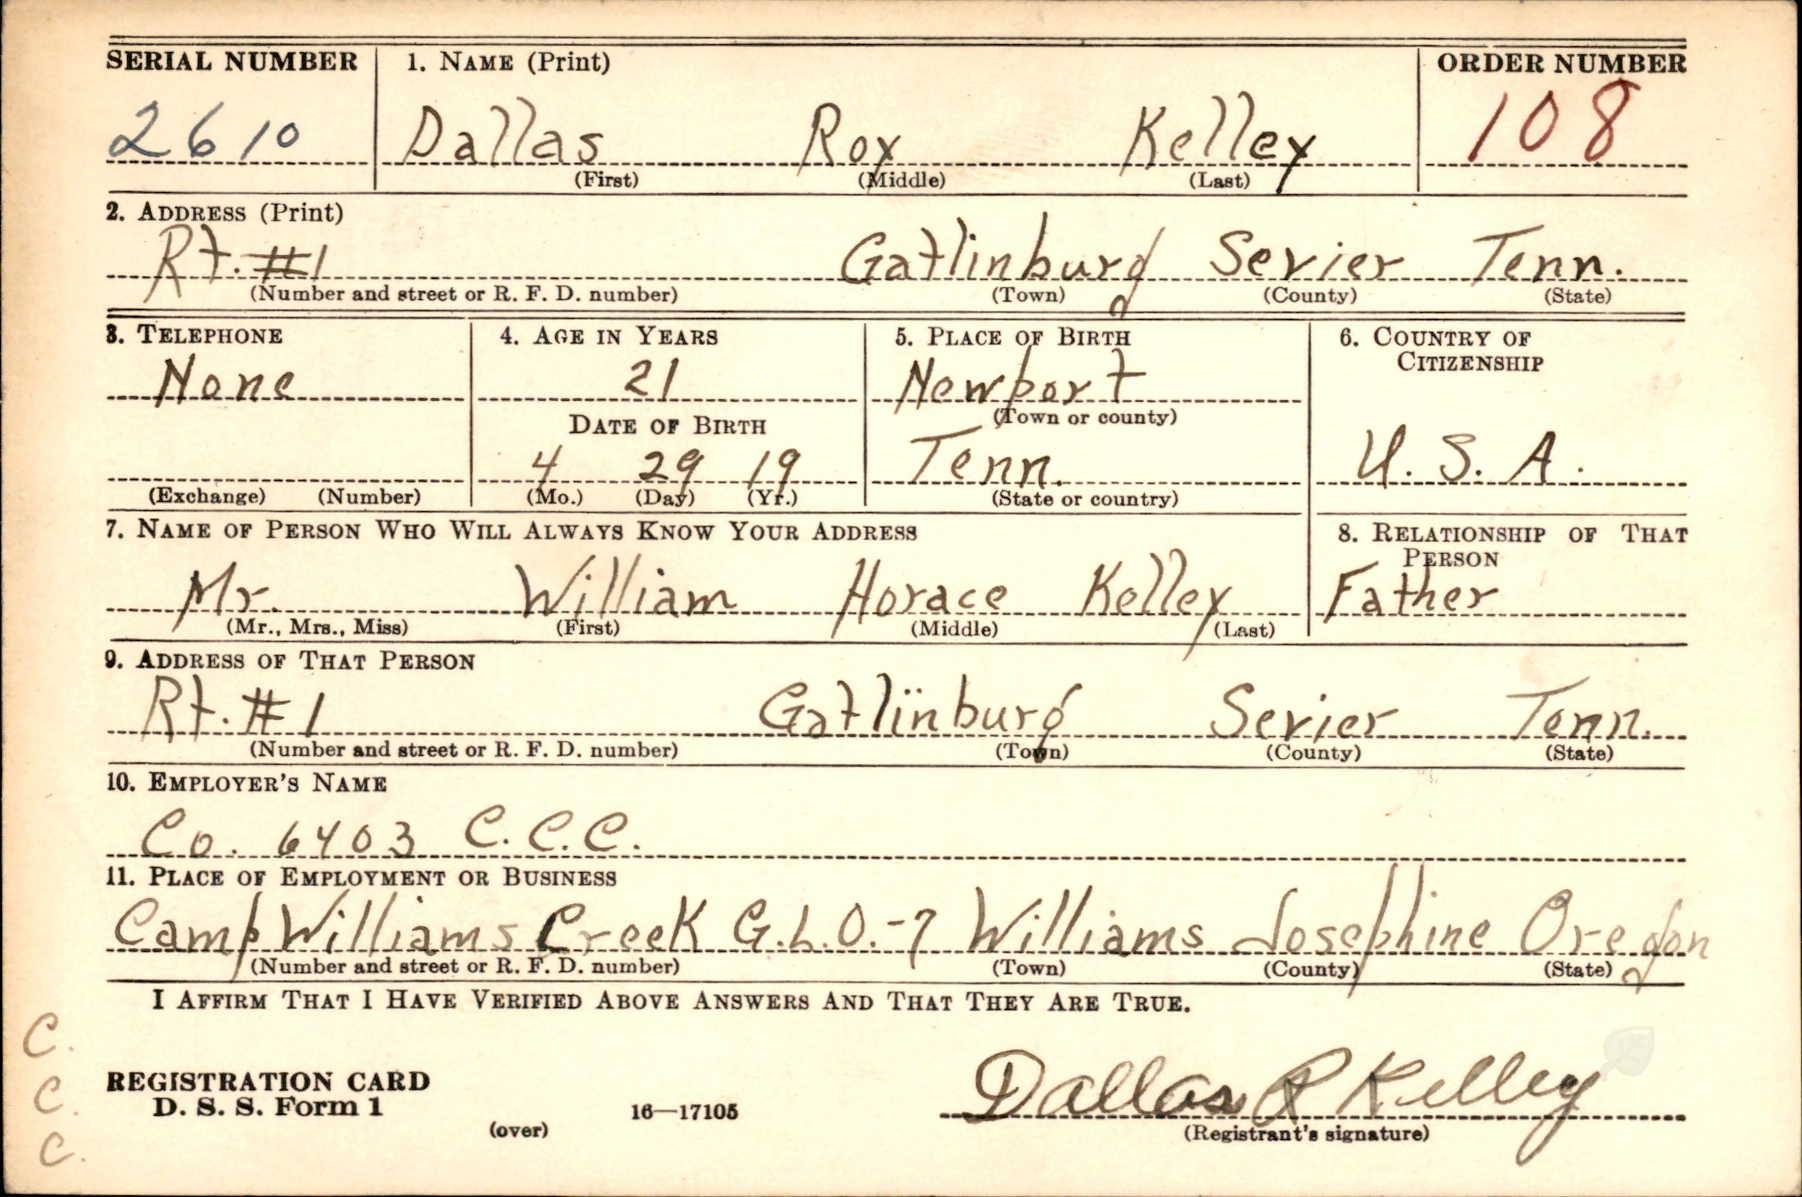 SERIAL NUMBER 1. NAME (Print) ORDER NUMBER
2610 Dallas Roy Kelley 108
(First) (Middle) (Last)
2. ADDRESS (Print)
Rt. #1 Gatlinburg Sevier Tenn.
(Number and street or R. F. D. number) (Town) (County) (State)
3. TELEPHONE 4. AGE IN YEARS 5. PLACE OF BIRTH 6. COUNTRY OF
CITIZENSHIP
None 21 Newport
(Town or county)
DATE OF BIRTH
4 29 19 Tenn. U. S. A.
(Exchange) (Number) (Mo.) (Day) (Yr.) (State or country)
7. NAME OF PERSON WHO WILL ALWAYS KNOW YOUR ADDRESS 8. RELATIONSHIP OF THAT
PERSON
Mr. William Horace Kelley Father
(Mr., Mrs., Miss) (First) (Middle) (Last)
9. ADDRESS OF THAT PERSON
Rt. #1 Gatlinburg Sevier Tenn.
(Number and street or R. F. D. number) (Town) (County) (State)
10. EMPLOYER'S NAME
Co. 6403 C.C.C.
11. PLACE OF EMPLOYMENT OR BUSINESS
Camp Williams Creek G.L.O.-7 Williams Josephine Oregon
(Number and street or R. F. D. number) (Town) (County) (State)
I AFFIRM THAT I HAVE VERIFIED ABOVE ANSWERS AND THAT THEY ARE TRUE.
C.
C.
C.
REGISTRATION CARD
D. S. S. Form 1
(over) 16—17105
Dallas R Kelley
(Registrant's signature)